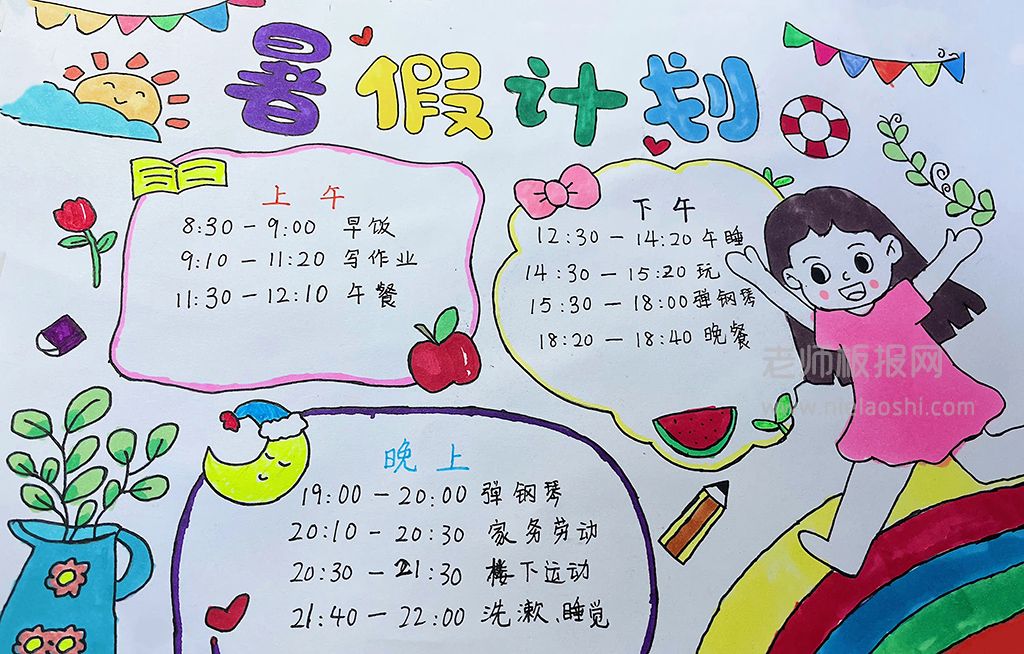 暑假计划
上午
8:30-9:00 早饭
9:10-11:20 写作业
11:30-12:10 午餐
下午
12:30-14:20 午睡
14:30-15:20 玩
15:30-18:00 弹钢琴
18:20-18:40 晚餐
老师板报网
www.nidlaoshi.com
晚上
19:00-20:00 弹钢琴
20:10-20:30 家务劳动
20:30-21:30 楼下运动
21:40-22:00 洗漱、睡觉